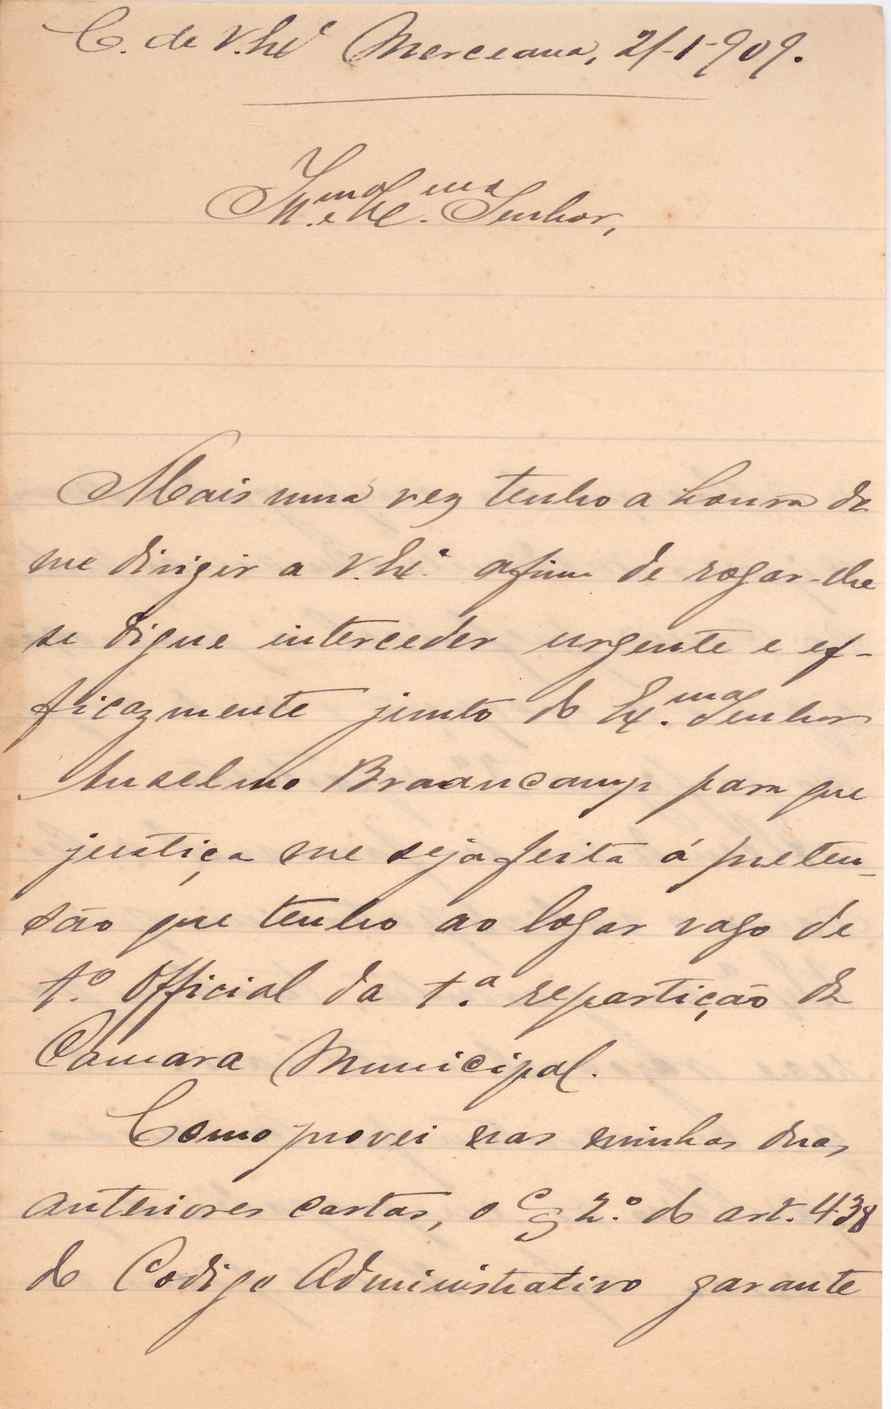 C. de V. Ex.ª Merceana, 21-1-909.
Ill.mo e Ex.mo Senhor,
Mais uma vez tenho a honra de
me dirigir a V. Ex.ª afim de rogar-lhe
se digne interceder urgente e ef-
ficazmente junto do Ex.mo Senhor
Anselmo Braancamp para que
justiça me seja feita á preten-
são que tenho ao logar vago de
1.º Official da 1.ª repartição da
Camara Municipal.
Como provei nas minhas duas
anteriores cartas, o § 2.º do art. 438
do Codigo Administrativo garante